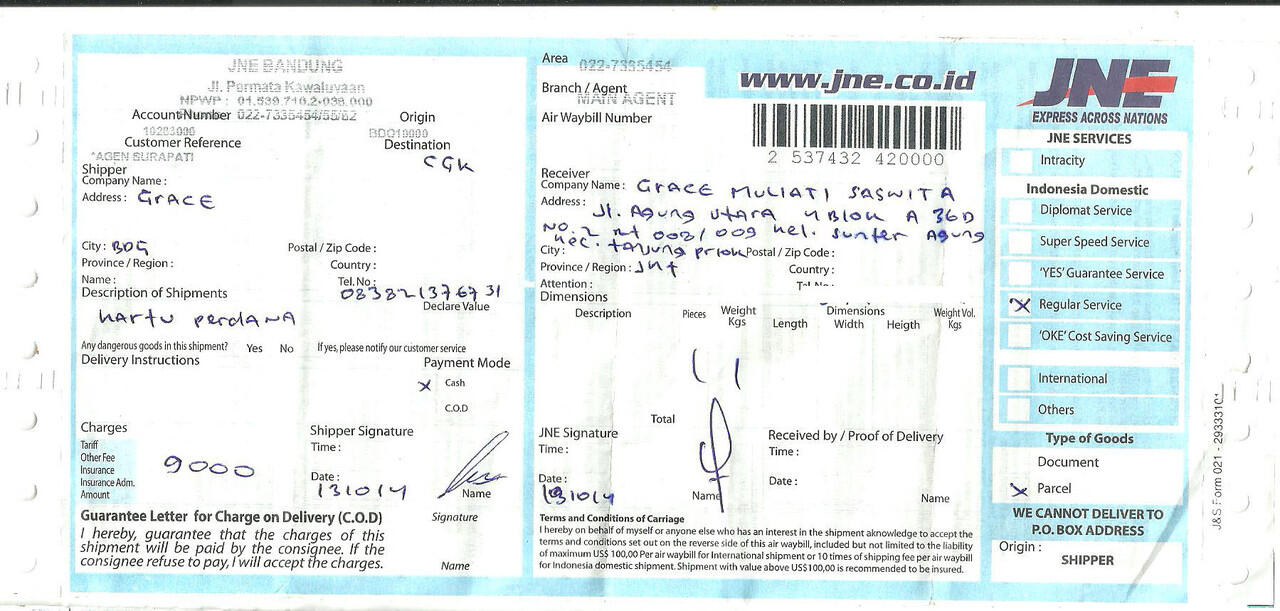 JNE BANDUNG
Jl. Permata Kawaluyaan
NPWP : 01.539.710.2-038.000
022-7335454/55/62
Account Number
Origin
10283000
BDO10000
Customer Reference
Destination
*AGEN SURAPATI
CGK
Shipper
Company Name :
Address : GRACE
City : BDG
Postal / Zip Code :
Province / Region :
Country :
Name :
Tel. No : 083821376731
Description of Shipments
Declare Value
kartu perdana
Any dangerous goods in this shipment? Yes No If yes, please notify our customer service
Delivery Instructions
Payment Mode
x Cash
C.O.D
Charges
Tariff
Other Fee
Insurance
Insurance Adm.
Amount
9000
Shipper Signature
Time :
Date :
131014
Name
Guarantee Letter for Charge on Delivery (C.O.D)
I hereby, guarantee that the charges of this
shipment will be paid by the consignee. If the
consignee refuse to pay, I will accept the charges.
Signature
Name
Area 022-7335454
Branch / Agent
MAIN AGENT
Air Waybill Number
www.jne.co.id
2 537432 420000
Receiver
Company Name : GRACE MULIATI SASWITA
Address :
Jl. Agung Utara 4 Blok A 36D
No. 2 rt 008/009 kel. Sunter Agung
kec. tanjung priok
City :
Postal / Zip Code :
Province / Region : Jkt
Country :
Attention :
Tel. No :
Dimensions
Description
Pieces
Weight
Kgs
Dimensions
Length Width Heigth
Weight Vol.
Kgs
1 1
Total
JNE Signature
Time :
Date :
131014
Name
Received by / Proof of Delivery
Time :
Date :
Name
Terms and Conditions of Carriage
I hereby on behalf of myself or anyone else who has an interest in the shipment aknowledge to accept the
terms and conditions set out on the reverse side of this air waybill, included but not limited to the liability
of maximum US$ 100,00 Per air waybill for International shipment or 10 times of shipping fee per air waybill
for Indonesia domestic shipment. Shipment with value above US$100,00 is recommended to be insured.
JNE
EXPRESS ACROSS NATIONS
JNE SERVICES
Intracity
Indonesia Domestic
Diplomat Service
Super Speed Service
'YES' Guarantee Service
x Regular Service
'OKE' Cost Saving Service
International
Others
Type of Goods
Document
x Parcel
WE CANNOT DELIVER TO
P.O. BOX ADDRESS
Origin :
SHIPPER
J&S Form 021 - 29333101